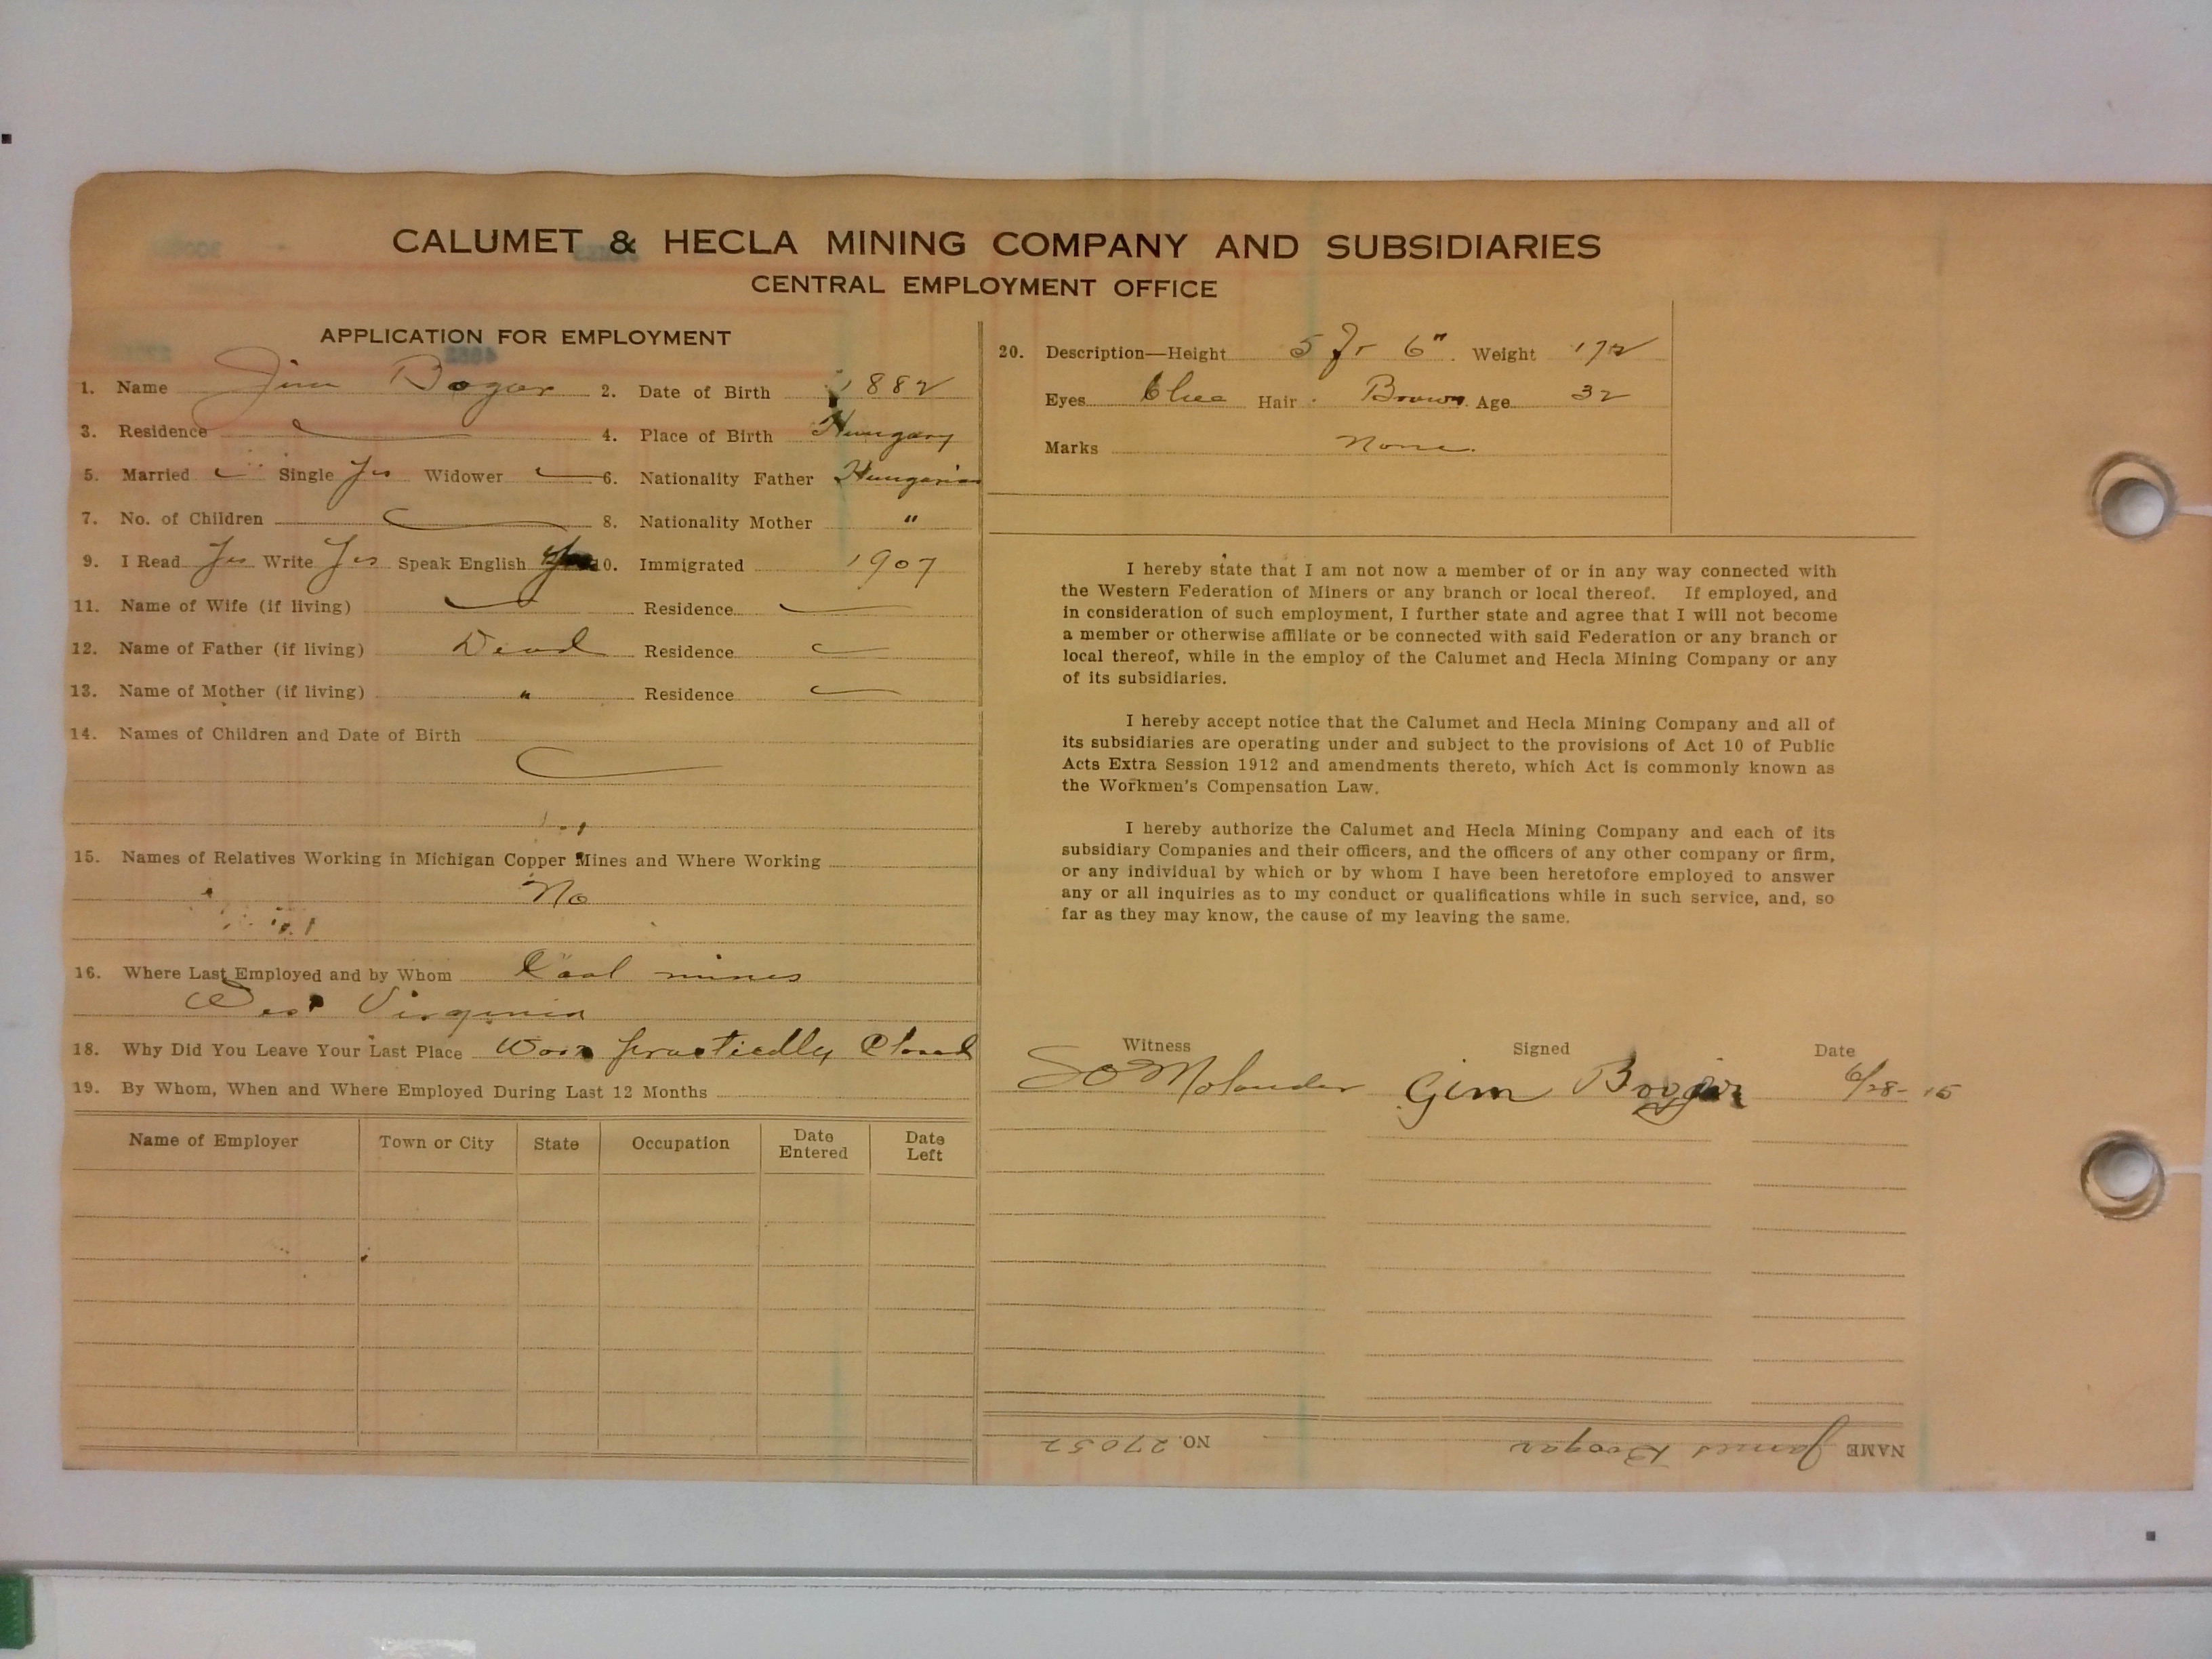 CALUMET & HECLA MINING COMPANY AND SUBSIDIARIES
CENTRAL EMPLOYMENT OFFICE
APPLICATION FOR EMPLOYMENT
1. Name Jim Bogar 2. Date of Birth 1882
3. Residence 4. Place of Birth Hungary
5. Married Single Yes Widower 6. Nationality Father Hungarian
7. No. of Children 8. Nationality Mother "
9. I Read Yes Write Yes Speak English 10. Immigrated 1907
11. Name of Wife (if living) Residence
12. Name of Father (if living) Dead Residence
13. Name of Mother (if living) " Residence
14. Names of Children and Date of Birth
15. Names of Relatives Working in Michigan Copper Mines and Where Working
No
16. Where Last Employed and by Whom Coal mines
West Virginia
18. Why Did You Leave Your Last Place Work practically Closed
19. By Whom, When and Where Employed During Last 12 Months
Name of Employer Town or City State Occupation Date Entered Date Left
20. Description—Height 5 ft 6" Weight 172
Eyes Blue Hair Brown Age 32
Marks None
I hereby state that I am not now a member of or in any way connected with
the Western Federation of Miners or any branch or local thereof. If employed, and
in consideration of such employment, I further state and agree that I will not become
a member or otherwise affiliate or be connected with said Federation or any branch or
local thereof, while in the employ of the Calumet and Hecla Mining Company or any
of its subsidiaries.
I hereby accept notice that the Calumet and Hecla Mining Company and all of
its subsidiaries are operating under and subject to the provisions of Act 10 of Public
Acts Extra Session 1912 and amendments thereto, which Act is commonly known as
the Workmen's Compensation Law.
I hereby authorize the Calumet and Hecla Mining Company and each of its
subsidiary Companies and their officers, and the officers of any other company or firm,
or any individual by which or by whom I have been heretofore employed to answer
any or all inquiries as to my conduct or qualifications while in such service, and, so
far as they may know, the cause of my leaving the same.
Witness Signed Date
SO Molander Gim Boogar 6/28-15
NAME James Boogar NO. 27052